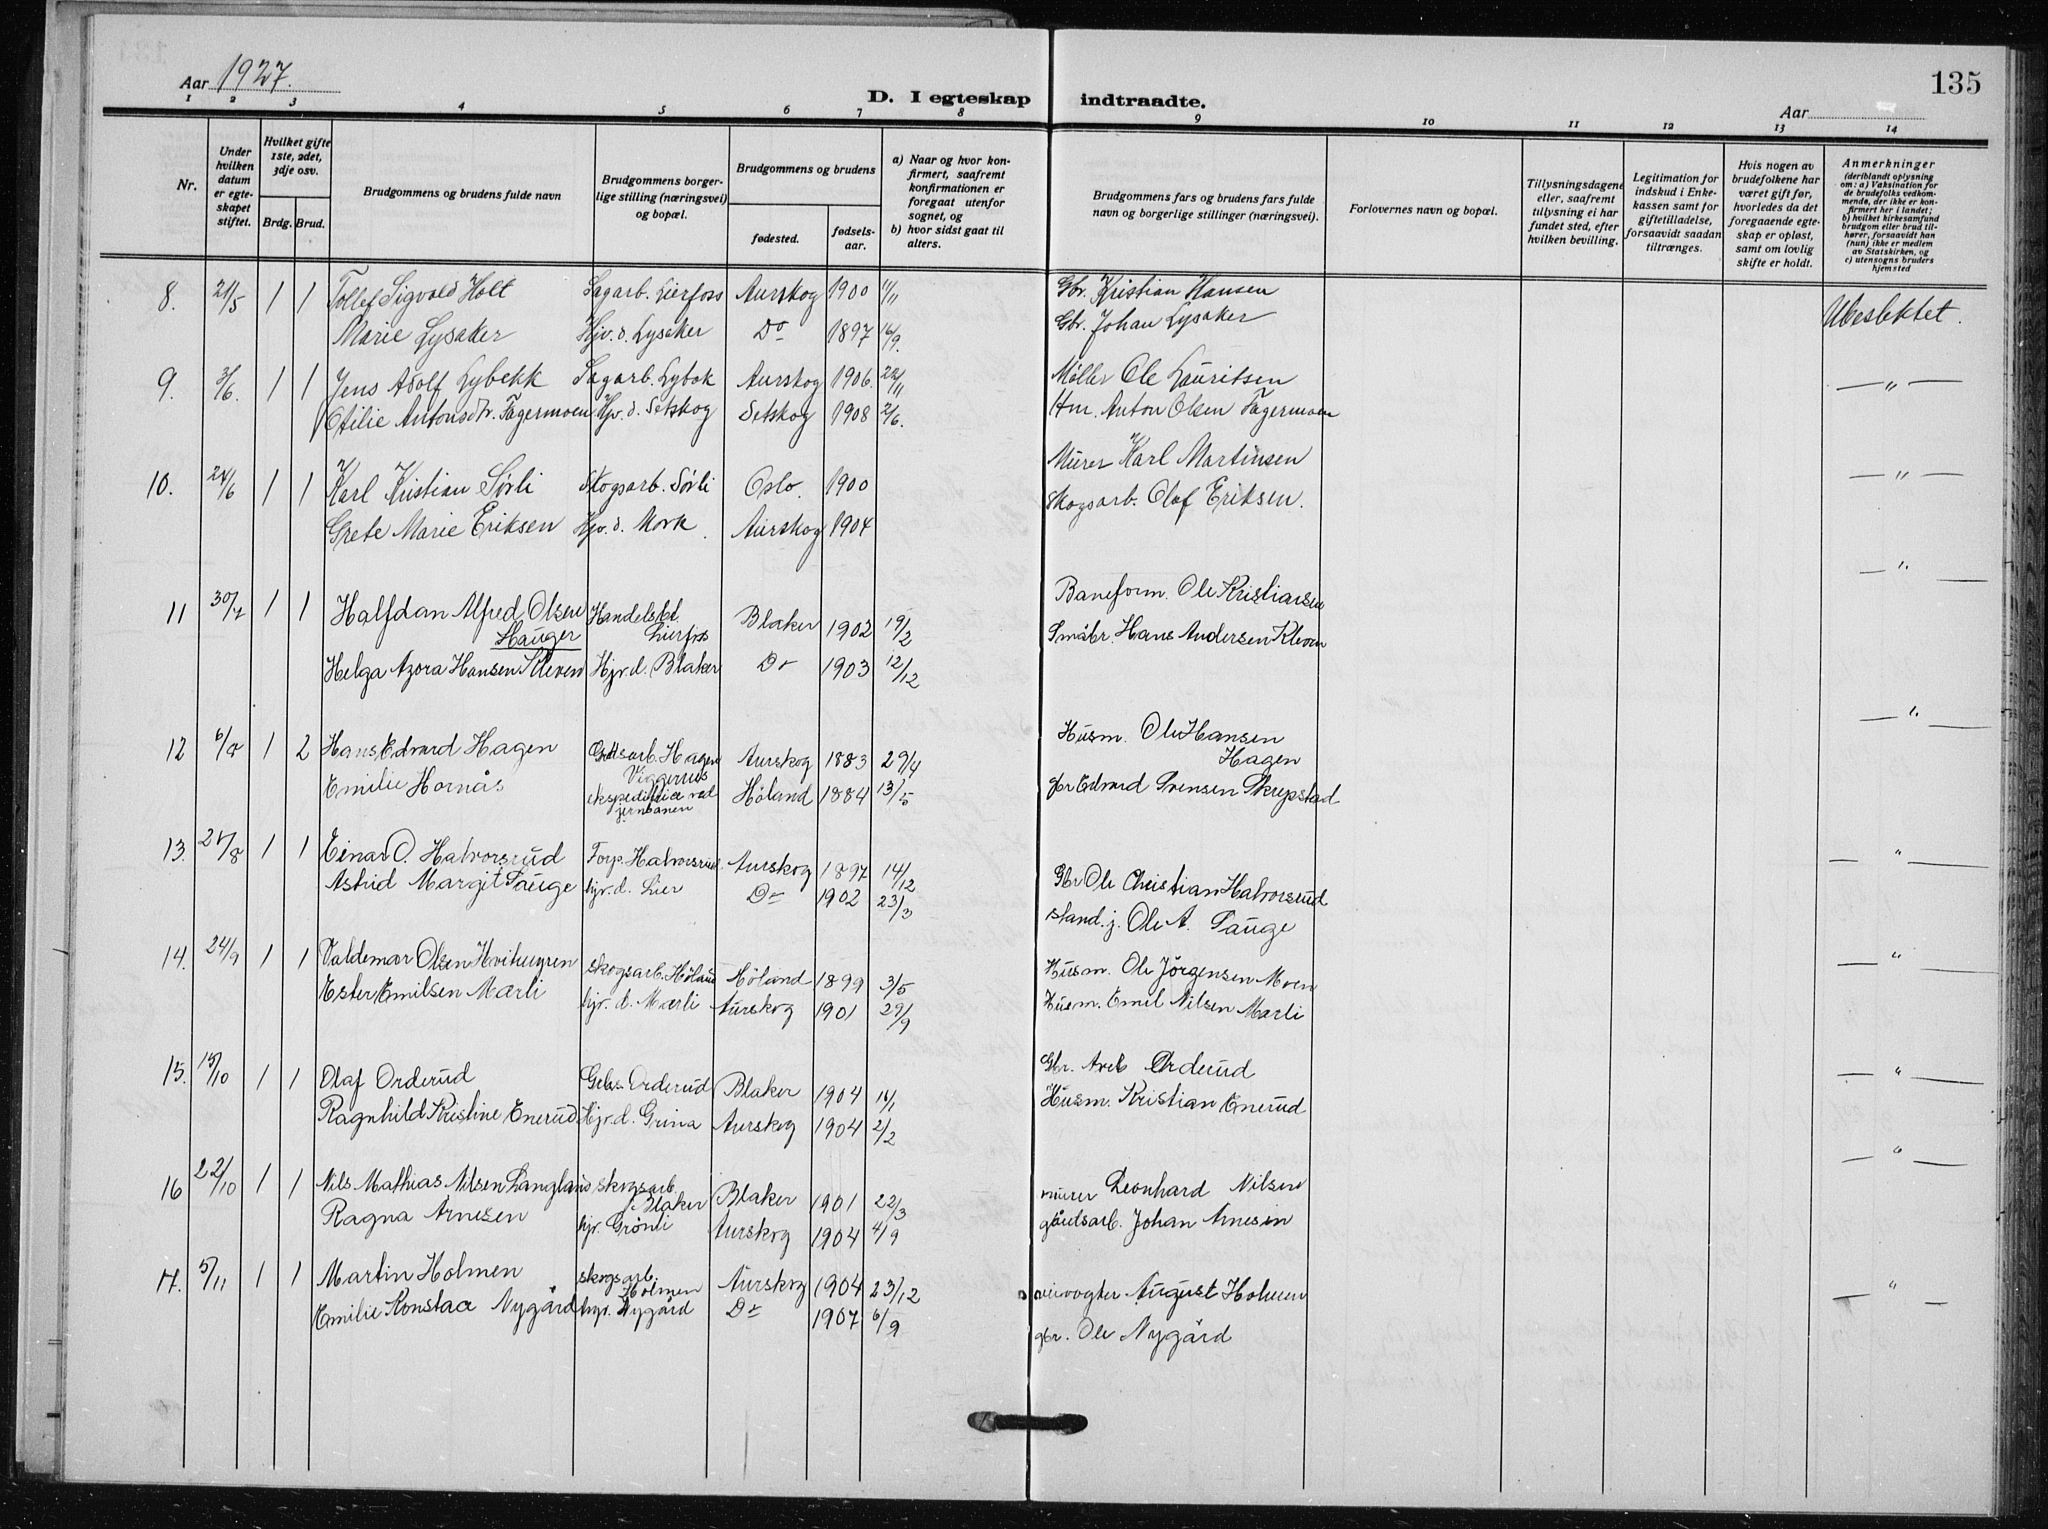 135
Aar 1927.
D. I egteskap indtraadte.
Aar
1 2 3 4 5 6 7 8 9 10 11 12 13 14
Nr.
Under hvilken datum er egteskapet stiftet.
Hvilket gifte 1ste, 2det, 3dje osv.
Brdg. Brud.
Brudgommens og brudens fulde navn
Brudgommens borgerlige stilling (næringsvei) og bopæl.
Brudgommens og brudens
fødested.
fødselsaar.
a) Naar og hvor konfirmert, saafremt konfirmationen er foregaat utenfor sognet, og
b) hvor sidst gaat til alters.
Brudgommens fars og brudens fars fulde navn og borgerlige stillinger (næringsvei).
Forlovernes navn og bopæl.
Tillysningsdagene eller, saafremt tillysning ei har fundet sted, efter hvilken bevilling.
Legitimation for indskud i Enkekassen samt for giftetilladelse, forsaavidt saadan tiltrænges.
Hvis nogen av brudefolkene har været gift før, hvorledes da det foregaaende egteskap er opløst, samt om lovlig skifte er holdt.
Anmerkninger (deriblandt oplysning om: a) Vaksination for de brudefolks vedkommende, der ikke er konfirmert her i landet; b) hvilket kirkesamfund brudgom eller brud tilhører, forsaavidt han (hun) ikke er medlem av Statskirken, og c) utensogns bruders hjemsted
8. 21/5 1 1 Tollef Sigvald Holt Sagarb. Lierfoss Aurskog 1900 11/11 Gbr. Kristian Hansen Ubeslektet.
Marie Lysaker Hjv. d. Lysaker Do 1897 16/9. Gbr. Johan Lysaker
9. 3/6. 1 1 Jens Adolf Lybekk Sagarb. Lybek Aurskog 1906. 22/11 Møller Ole Lauritsen — " —
Otilie Antonsdtr. Fagermoen Hjv. d. Setskog Setskog 1908 2/6. Hm. Anton Olsen Fagermoen
10. 24/6 1 1 Karl Kristian Sørli Skogsarb. Sørli Oslo. 1900 Murer Karl Martinsen — " —
Grete Marie Eriksen Hjv. d. Mork. Aurskog 1904 Skogsarb. Olaf Eriksen.
11 30/7 1 1 Halfdan Alfred Olsen Handelsbet. Blaker 1902 19/2 Baneform. Ole Kristiansen — " —
Hauger Lierfoss Småbr Hans Andersen Kleven
Helga Azora Hansen Kleven Hjv. d. Blaker Do 1903 12/12
12 6/8 1 2 Hans Edvard Hagen Hagen Aurskog 1883 29/4 Husm. Ole Hansen — " —
Hagen
Emilie Hornås jernbanen Høland 1884 13/5 gbr Edvard Svensen Skrepstad
13. 27/8 1 1 Einar O. Halvorsrud Forp. Halvorsrud Aurskog 1897 14/12 Gbr Ole Christian Halvorsrud — " —
Astrid Margit Tauge hjv. d. Lier Do 1902 23/3 Ole A. Tauge
14. 24/9 1 1 Valdemar Olsen skogsarb. Høland Høland 1899 3/5 Husm. Ole Jörgensen Moen — " —
Ester Emilsen Mærli hjv. d. Mærli Aurskog 1901 29/9 Husm. Emil Nilsen Mærli
15. 15/10 1 1 Olaf Orderud Gbr. Orderud Blaker 1904 16/1 Gbr. Orderud — " —
Ragnhild Kristine Enerud Hjv. d. Grina Aurskog 1904 2/2 Husm. Kristian Enerud
16 22/10 1 1 Nils Mathias Nilsen Langland skogsarb. Blaker Blaker 1901 22/3 murer Leonhard Nilsen — " —
Ragna Arnesen hjv. Grönli Aurskog 1904 4/9 gårdsarb. Johan Arnesen
17. 5/11 1 1 Martin Holmen skogsarb. Holmen Aurskog 1904 23/12 veivogter August Holmen — " —
Emilie Konstaa Nygård hjv. Nygård Do 1907 6/9 gbr. Ole Nygård